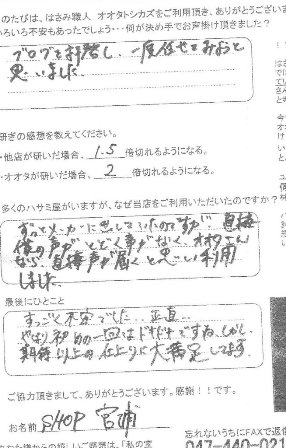 このたびは、はさみ職人 オオタトシカズをご利用頂き、ありがとうござい
いろいろ不安もあったでしょう…何が決め手でお声掛け頂きました？
ブログを拝啓し、一度任せてみおと
思いました
研ぎの感想を教えてください。
・他店が研いだ場合、1.5 倍切れるようになる。
・オオタが研いだ場合、2 倍切れるようになる。
多くのハサミ屋がいますが、なぜ当店をご利用いただいたのですか？
ずっとメーカーに出していたのですが 直接
僕の声がとどく事がなく、オオタさん
なら 直接声が届くと思い利用
しました
最後にひとこと
すっごく不安でした 正直…
やはり初めの一回はドキドキですね。しかし
期待以上の仕上りに大満足してます。
ご協力頂きまして、ありがとうございます。感謝！！です。
お名前 SHOP 宮浦
忘れないうちにFAXで返信
047-440-021